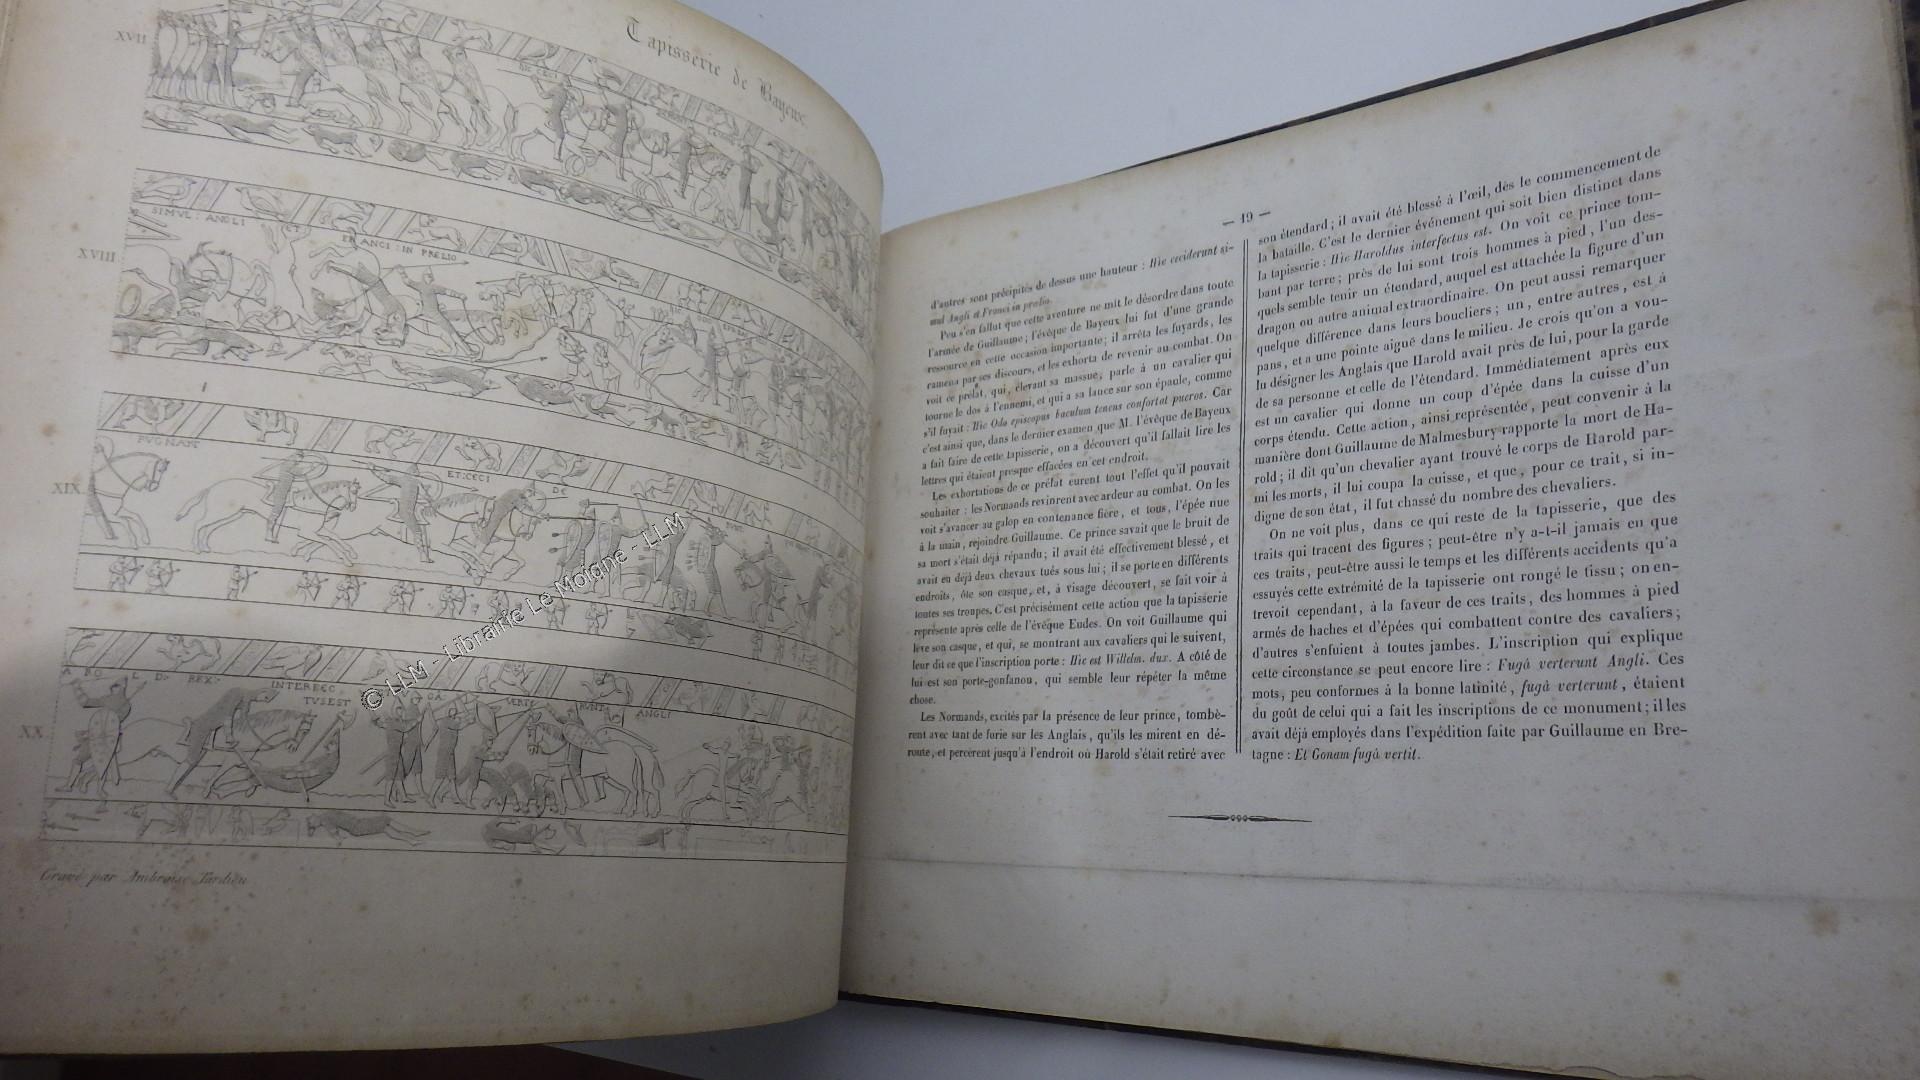 Tapisserie de Bayeux.
XVII
HIC CECI
XVIII
SIMVL : ANGLI ET
FRANCI : IN PRELIO
XIX
PVGNANT
ET : CECI DE
XX
A RO L D : REX :
INTERFEC
TVS EST
VERTE RVNT
ANGLI
Gravé par Ambroise Tardieu
© LLM - Librairie Le Moigne - LLM
— 19 —
d'autres sont précipités de dessus une hauteur : Hic ceciderunt si-
mul Angli et Franci in prelio.
Peu s'en fallut que cette aventure ne mît le désordre dans toute
l'armée de Guillaume ; l'évêque de Bayeux lui fut d'une grande
ressource en cette occasion importante ; il arrêta les fuyards, les
ramena par ses discours, et les exhorta de revenir au combat. On
voit ce prélat, qui, élevant sa massue, parle à un cavalier qui
tourne le dos à l'ennemi, et qui a sa lance sur son épaule, comme
s'il fuyait : Hic Odo episcopus baculum tenens confortat pueros. Car
c'est ainsi que, dans le dernier examen que M. l'évêque de Bayeux
a fait faire de cette tapisserie, on a découvert qu'il fallait lire les
lettres qui étaient presque effacées en cet endroit.
Les exhortations de ce prélat eurent tout l'effet qu'il pouvait
souhaiter : les Normands revinrent avec ardeur au combat. On les
voit s'avancer au galop en contenance fière, et tous, l'épée nue
à la main, rejoindre Guillaume. Ce prince savait que le bruit de
sa mort s'était déjà répandu ; il avait été effectivement blessé, et
avait eu déjà deux chevaux tués sous lui ; il se porte en différents
endroits, ôte son casque, et, à visage découvert, se fait voir à
toutes ses troupes. C'est précisément cette action que la tapisserie
représente après celle de l'évêque Eudes. On voit Guillaume qui
lève son casque, et qui, se montrant aux cavaliers qui le suivent,
leur dit ce que l'inscription porte : Hic est Willelm. dux. A côté de
lui est son porte-gonfanon, qui semble leur répéter la même
chose.
Les Normands, excités par la présence de leur prince, tombè-
rent avec tant de furie sur les Anglais, qu'ils les mirent en dé-
route, et percèrent jusqu'à l'endroit où Harold s'était retiré avec
son étendard ; il avait été blessé à l'œil, dès le commencement de
la bataille. C'est le dernier événement qui soit bien distinct dans
la tapisserie : Hic Haroldus interfectus est. On voit ce prince tom-
bant par terre ; près de lui sont trois hommes à pied, l'un des-
quels semble tenir un étendard, auquel est attachée la figure d'un
dragon ou autre animal extraordinaire. On peut aussi remarquer
quelque différence dans leurs boucliers ; un, entre autres, est à
pans, et a une pointe aiguë dans le milieu. Je crois qu'on a vou-
lu désigner les Anglais que Harold avait près de lui, pour la garde
de sa personne et celle de l'étendard. Immédiatement après eux
est un cavalier qui donne un coup d'épée dans la cuisse d'un
corps étendu. Cette action, ainsi représentée, peut convenir à la
manière dont Guillaume de Malmesbury rapporte la mort de Ha-
rold ; il dit qu'un chevalier ayant trouvé le corps de Harold par-
mi les morts, il lui coupa la cuisse, et que, pour ce trait, si in-
digne de son état, il fut chassé du nombre des chevaliers.
On ne voit plus, dans ce qui reste de la tapisserie, que des
traits qui tracent des figures ; peut-être n'y a-t-il jamais eu que
ces traits, peut-être aussi le temps et les différents accidents qu'a
essuyés cette extrémité de la tapisserie ont rongé le tissu ; on en-
trevoit cependant, à la faveur de ces traits, des hommes à pied
armés de haches et d'épées qui combattent contre des cavaliers ;
d'autres s'enfuient à toutes jambes. L'inscription qui explique
cette circonstance se peut encore lire : Fugâ verterunt Angli. Ces
mots, peu conformes à la bonne latinité, fugâ verterunt, étaient
du goût de celui qui a fait les inscriptions de ce monument ; il les
avait déjà employés dans l'expédition faite par Guillaume en Bre-
tagne : Et Conam fugâ vertit.